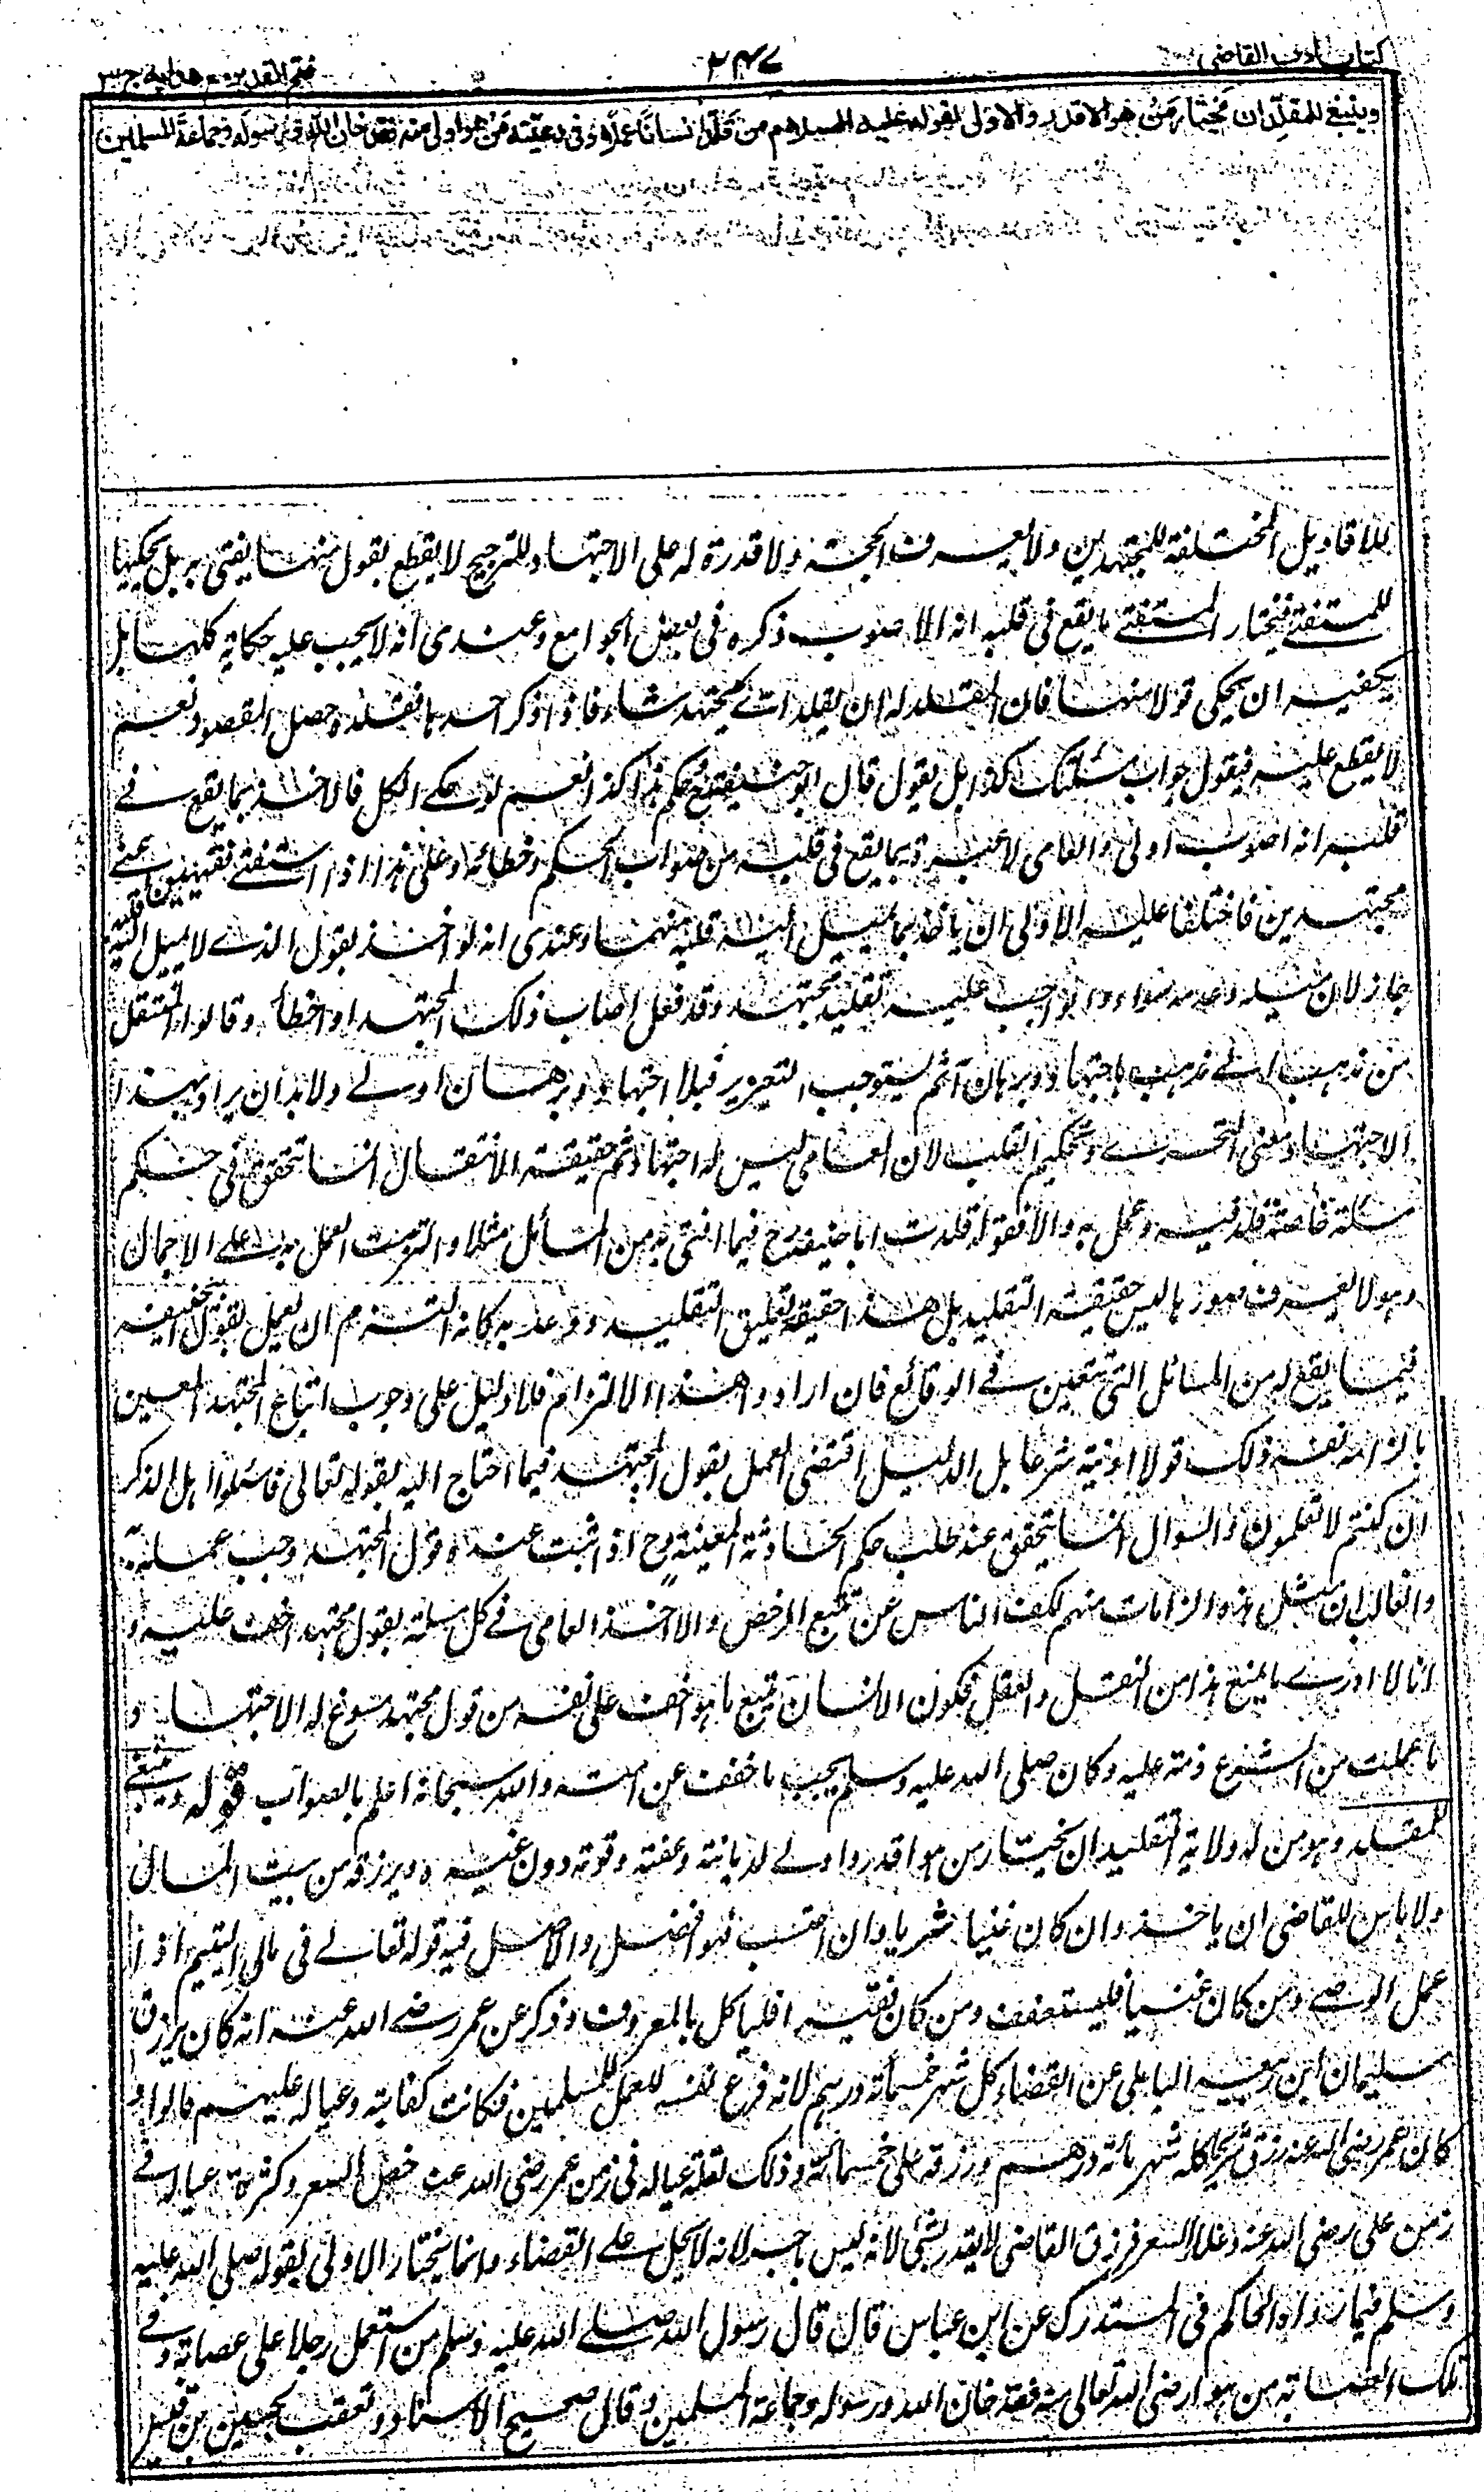 كتاب ادب القاضى
٢٤٧
فتح القدير مع هدايه ج٣
وينبغى للمقلد ان يختار من هو الاقدر والاولى لقوله عليه السلام من قلد انسانا عملا وفى رعيته من هو اولى منه فقد خان الله ورسوله وجماعة المسلمين
للاقاويل المختلفة للمجتهدين ولا يعرف الحجة ولا قدرة له على الاجتهاد للترجيح لا يقطع بقول منها يفتى به بل يحكيها
للمستفتى فيختار المستفتى ما يقع فى قلبه انه الاصوب ذكره فى بعض الجوامع وعندى انه لا يجب عليه حكاية كلها بل
يكفيه ان يحكى قولا منها فان المقلد له ان يقلد اى مجتهد شاء فاذا ذكر احدها فقلده حصل المقصود نعم
لا يقطع عليه فيقول جواب مسئلتك كذا بل يقول قال ابو حنيفة رح حكم هذا كذا نعم لو حكى الكل فالاخذ بما يقع فى
قلبه انه اصوب اولى والعامى لا عبرة بما يقع فى قلبه من صواب الحكم وخطائه وعلى هذا اذا استفتى فقيهين اعنى
مجتهدين فاختلفا عليه الاولى ان ياخذ بما يميل اليه قلبه منهما وعندى انه لو اخذ بقول الذى لا يميل اليه قلبه
جاز لان ميله وعدمه سواء والواجب عليه تقليد مجتهد وقد فعل اصاب ذلك المجتهد او اخطأ وقالوا المنتقل
من مذهب الى مذهب باجتهاد وبرهان آثم يستوجب التعزير فبلا اجتهاد وبرهان اولى ولا بد ان يراد بهذا
الاجتهاد معنى التحرى وتحكيم القلب لان العامى ليس له اجتهاد ثم حقيقة الانتقال انما تتحقق فى حكم
مسئلة خاصة قلد فيه وعمل به والا فقوله قلدت ابا حنيفة رح فيما افتى به من المسائل مثلا والتزمت العمل به على الاجمال
وهو لا يعرف صورها ليس حقيقة التقليد بل هذا حقيقة تعليق التقليد ووعد به كانه التزم ان يعمل بقول ابى حنيفة
فيما يقع له من المسائل التى تتعين فى الوقائع فان ارادوا هذا الالتزام فلا دليل على وجوب اتباع المجتهد المعين
بالزامه نفسه ذلك قولا او نية شرعا بل الدليل اقتضى العمل بقول المجتهد فيما احتاج اليه بقوله تعالى فاسئلوا اهل الذكر
ان كنتم لا تعلمون والسوال انما يتحقق عند طلب حكم الحادثة المعينة وح اذا ثبت عنده قول المجتهد وجب عمله به
والغالب ان مثل هذه الزامات منهم لكف الناس عن تتبع الرخص والا اخذ العامى فى كل مسئلة بقول مجتهد اخف عليه و
انا لا ادرى ما يمنع هذا من النقل والعقل فكون الانسان يتبع ما هو اخف على نفسه من قول مجتهد مسوغ له الاجتهاد و
ما علمت من الشرع ذمه عليه وكان صلى الله عليه وسلم يحب ما خفف عن امته والله سبحانه اعلم بالصواب قوله وينبغى
للمقلد وهو من له ولاية التقليد ان يختار من هو اقدر واولى لديانته وعفته وقوته دون غيره ويرزقه من بيت المال
ولا باس للقاضى ان ياخذ وان كان غنيا مثريا وان احتسب فهو افضل والاصل فيه قوله تعالى فى مالى اليتيم اذا
عمل الوصى ومن كان غنيا فليستعفف ومن كان فقيرا فلياكل بالمعروف وذكر عن عمر رضى الله عنه انه كان يرزق
سليمان ابن ربيعة الباهلى عن القضاء كل شهر خمسمائة درهم لانه فرغ نفسه للعمل للمسلمين فكانت كفايته وعياله عليهم قالوا و
كان عمر رضى الله عنه رزق شريحا كل شهر مائة درهم ورزقه على خمسمائة وذلك لقلة عياله فى زمن عمر رضى الله عنه رخص السعر وكثرة عياله فى
زمن على رضى الله عنه وغلاء السعر فرزق القاضى لا يقدر بشئ لانه ليس باجر لانه لا يحل على القضاء وانما يختار الاولى لقوله صلى الله عليه
وسلم فيما رواه الحاكم فى المستدرك عن ابن عباس قال قال رسول الله صلى الله عليه وسلم من استعمل رجلا على عصابة وفى
تلك العصابة من هو ارضى لله تعالى منه فقد خان الله ورسوله وجماعة المسلمين وقال صحيح الاسناد وتعقب بحسين بن قيس